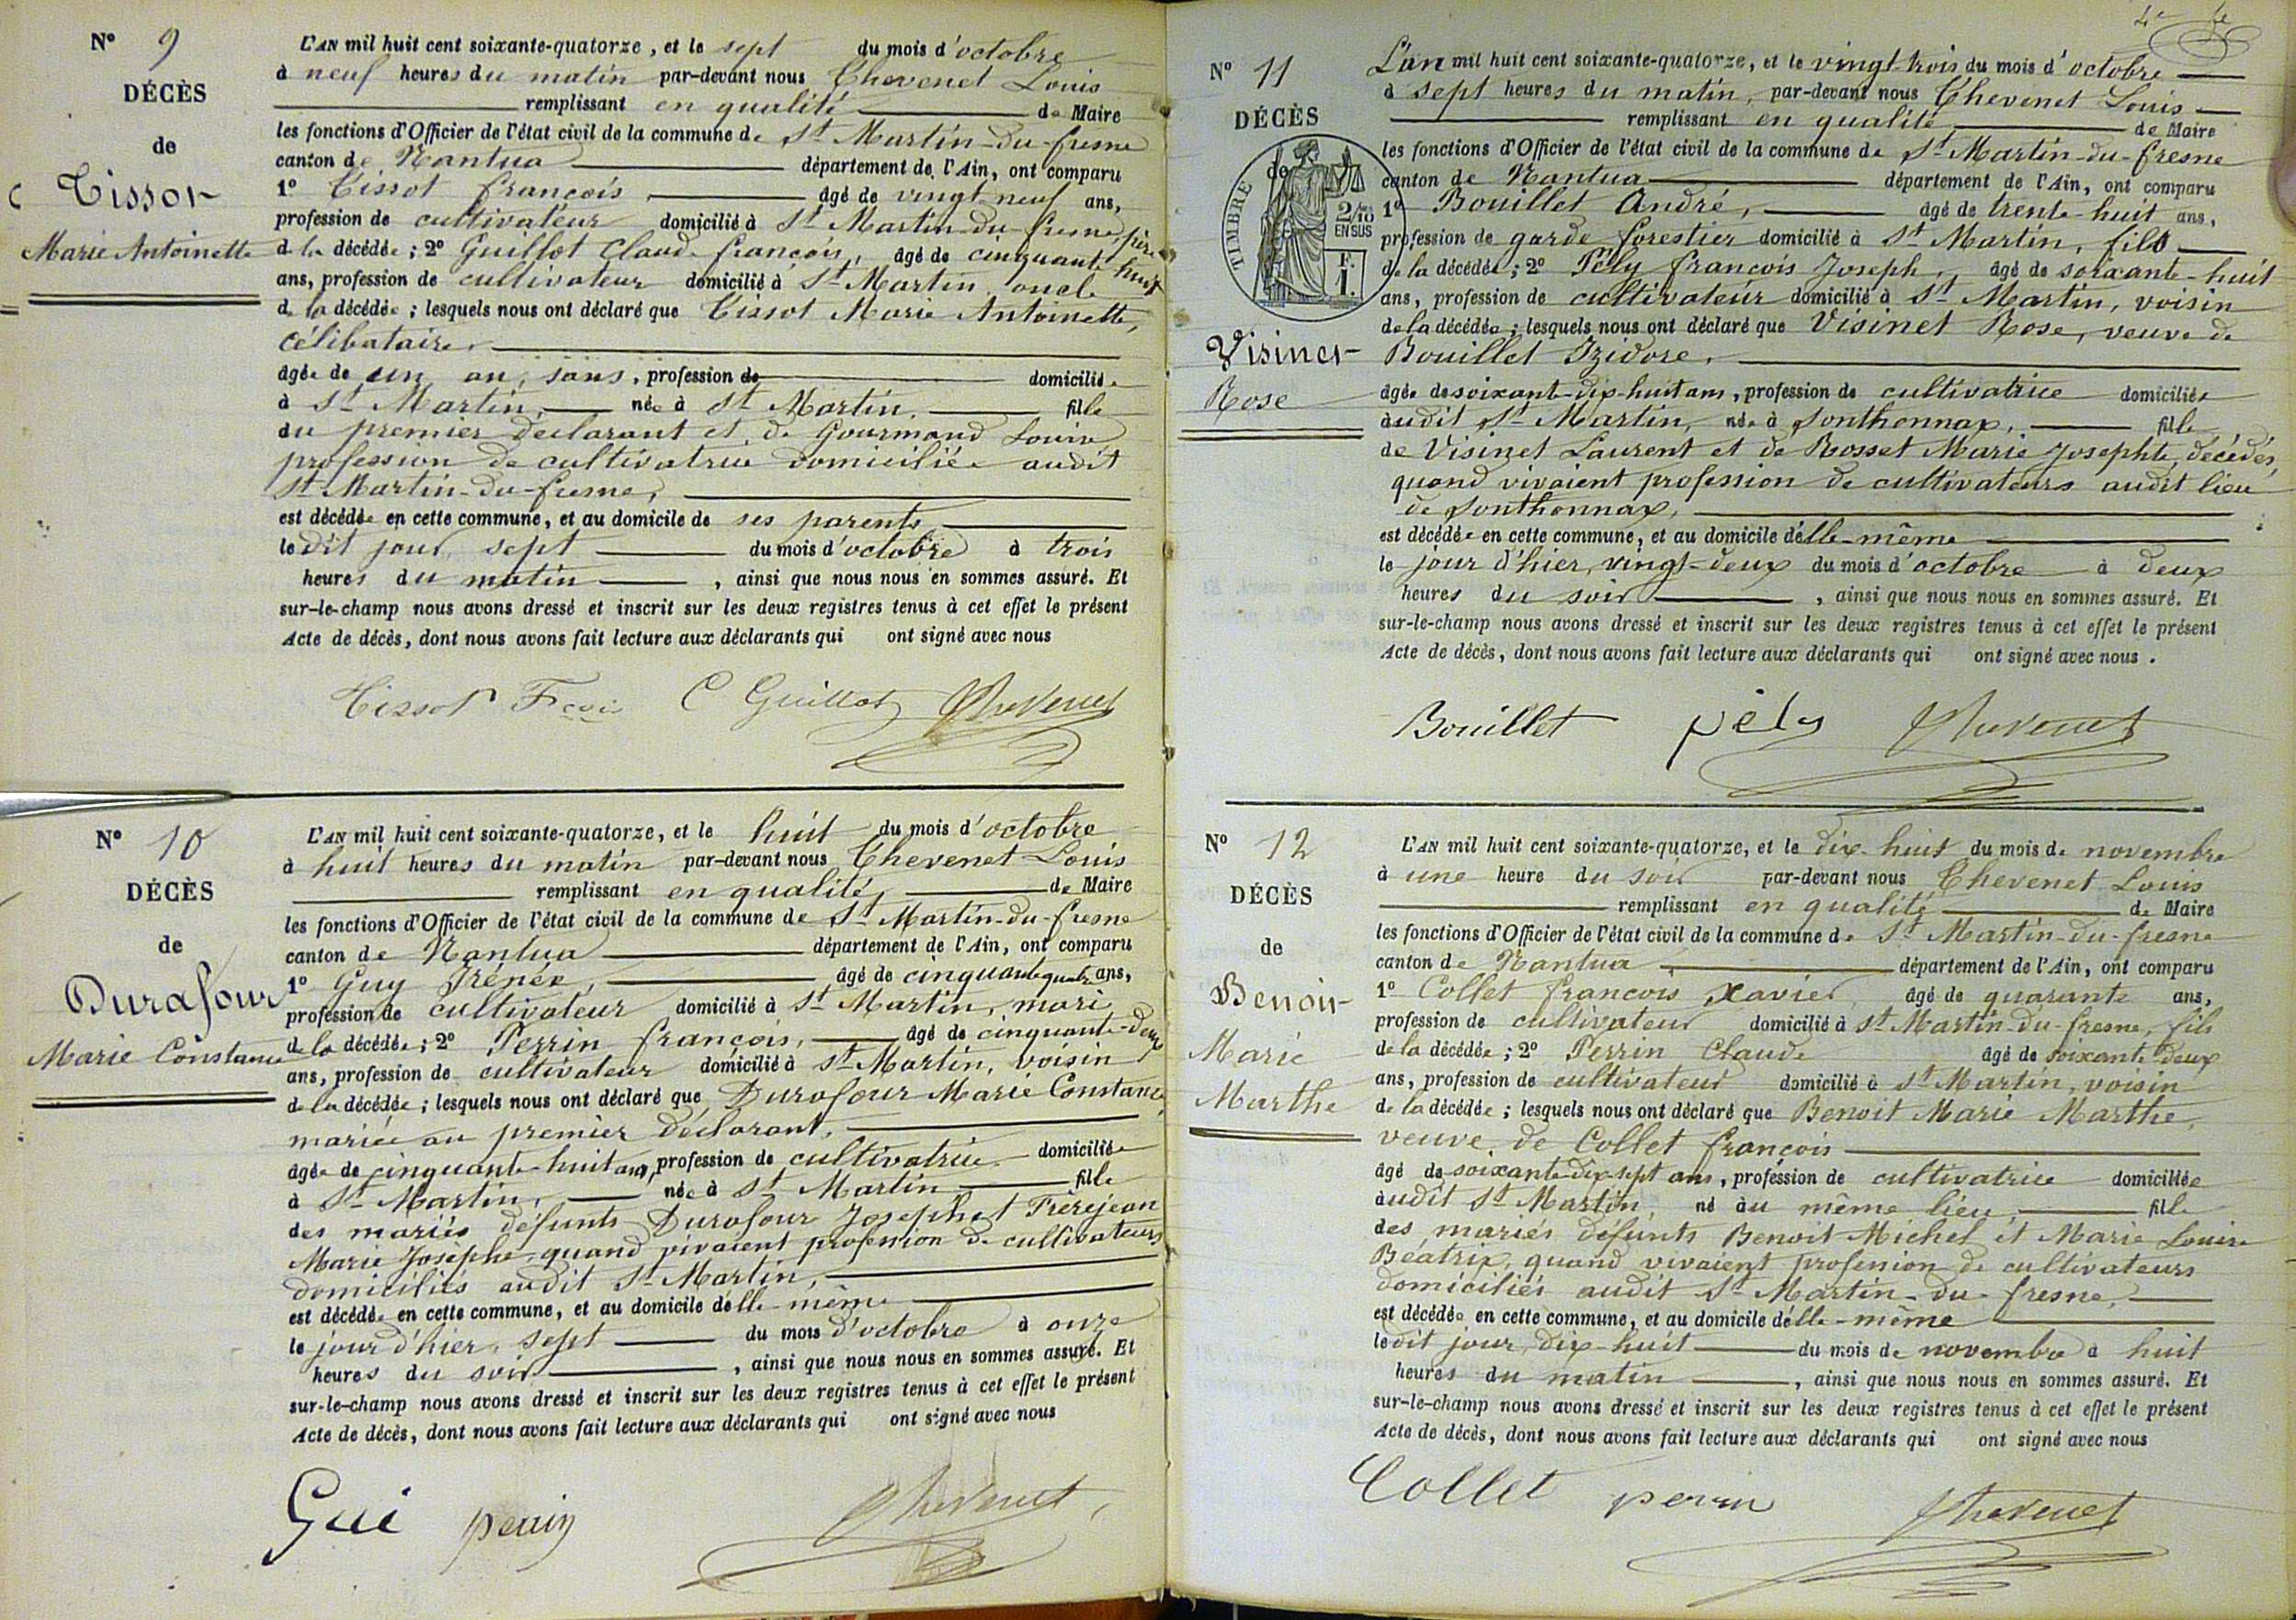 N° 9
DÉCÈS
de
Tissot
Marie Antoinette
L'AN mil huit cent soixante-quatorze, et le sept du mois d'octobre
à neuf heures du matin par-devant nous Chevenet Louis
remplissant en qualité de Maire
les fonctions d'Officier de l'état civil de la commune de St Martin-du-fresne
canton de Nantua département de l'Ain, ont comparu
1° Tissot françois âgé de vingt-neuf ans,
profession de cultivateur domicilié à St Martin-du-fresne, père
de la décédée ; 2° Guillot Claude françois, âgé de cinquante huit
ans, profession de cultivateur domicilié à St Martin, oncle
de la décédée ; lesquels nous ont déclaré que Tissot Marie Antoinette,
célibataire,
âgée de un an, sans, profession de domiciliée
à St Martin, née à St Martin, fille
du premier déclarant et de Gourmand Louise
profession de cultivatrice domiciliée audit
St Martin-du-fresne,
est décédée en cette commune, et au domicile de ses parents
le dit jour, sept du mois d'octobre à trois
heures du matin, ainsi que nous nous en sommes assuré. Et
sur-le-champ nous avons dressé et inscrit sur les deux registres tenus à cet effet le présent
Acte de décès, dont nous avons fait lecture aux déclarants qui ont signé avec nous
Tissot C Guillot Chevenet
N° 10
DÉCÈS
de
Durafour
Marie Constance
L'AN mil huit cent soixante-quatorze, et le huit du mois d'octobre
à huit heures du matin par-devant nous Chevenet Louis
remplissant en qualité, de Maire
les fonctions d'Officier de l'état civil de la commune de St Martin-du-fresne
canton de Nantua département de l'Ain, ont comparu
1° Guy Irénée, âgé de cinquante quatre ans,
profession de cultivateur domicilié à St Martin, mari
de la décédée ; 2° Perrin françois, âgé de cinquante-deux
ans, profession de cultivateur domicilié à St Martin, voisin
de la décédée ; lesquels nous ont déclaré que Durafour Marie Constance
mariée au premier déclarant,
âgée de cinquante-huit ans, profession de cultivatrice domiciliée
à St Martin, née à St Martin fille
des mariés défunts Durafour Joseph et Frèrejean
Marie Josèphe, quand vivaient profession de cultivateurs
domiciliés audit St Martin,
est décédée en cette commune, et au domicile d'elle-même
le jour d'hier, sept du mois d'octobre à onze
heures du soir, ainsi que nous nous en sommes assuré. Et
sur-le-champ nous avons dressé et inscrit sur les deux registres tenus à cet effet le présent
Acte de décès, dont nous avons fait lecture aux déclarants qui ont signé avec nous
Gui perrin Chevenet
N° 11
DÉCÈS
de
TIMBRE
2/10
EN SUS
F.
1.
Visinet
Rose
L'an mil huit cent soixante-quatorze, et le vingt-trois du mois d'octobre
à sept heures du matin, par-devant nous Chevenet Louis
remplissant en qualité de Maire
les fonctions d'Officier de l'état civil de la commune de St Martin-du-fresne
canton de Nantua département de l'Ain, ont comparu
1° Bouillet André, âgé de trente-huit ans,
profession de garde forestier domicilié à St Martin, fils
de la décédée ; 2° Pély françois Joseph, âgé de soixante-huit
ans, profession de cultivateur domicilié à St Martin, voisin
de la décédée ; lesquels nous ont déclaré que Visinet Rose, veuve de
Bouillet Izidore,
âgée de soixant-dix-huit ans, profession de cultivatrice domiciliée
audit St Martin, née à Sonthonnax, fille
de Visinet Laurent et de Bosset Marie Josephte, décédés,
quand vivaient profession de cultivateurs audit lieu
de Sonthonnax,
est décédée en cette commune, et au domicile d'elle-même
le jour d'hier, vingt-deux du mois d'octobre à deux
heures du soir, ainsi que nous nous en sommes assuré. Et
sur-le-champ nous avons dressé et inscrit sur les deux registres tenus à cet effet le présent
Acte de décès, dont nous avons fait lecture aux déclarants qui ont signé avec nous.
Bouillet pély Chevenet
N° 12
DÉCÈS
de
Benoit
Marie
Marthe
L'AN mil huit cent soixante-quatorze, et le dix-huit du mois de novembre
à une heure du soir par-devant nous Chevenet Louis
remplissant en qualité de Maire
les fonctions d'Officier de l'état civil de la commune de St Martin-du-fresne
canton de Nantua, département de l'Ain, ont comparu
1° Collet françois Xavier, âgé de quarante ans,
profession de cultivateur domicilié à St Martin-du-fresne, fils
de la décédée ; 2° Perrin Claude âgé de soixante deux
ans, profession de cultivateur domicilié à St Martin, voisin
de la décédée ; lesquels nous ont déclaré que Benoit Marie Marthe,
veuve de Collet françois
âgé de soixante-dix-sept ans, profession de cultivatrice domiciliée
audit St Martin, né au même lieu, fille
des mariés défunts Benoit Michel et Marie Louise
Béatrix, quand vivaient profession de cultivateurs
domiciliés audit St Martin-du-fresne,
est décédée en cette commune, et au domicile d'elle-même
le dit jour, dix-huit du mois de novembre à huit
heures du matin, ainsi que nous nous en sommes assuré. Et
sur-le-champ nous avons dressé et inscrit sur les deux registres tenus à cet effet le présent
Acte de décès, dont nous avons fait lecture aux déclarants qui ont signé avec nous
Collet perrin Chevenet